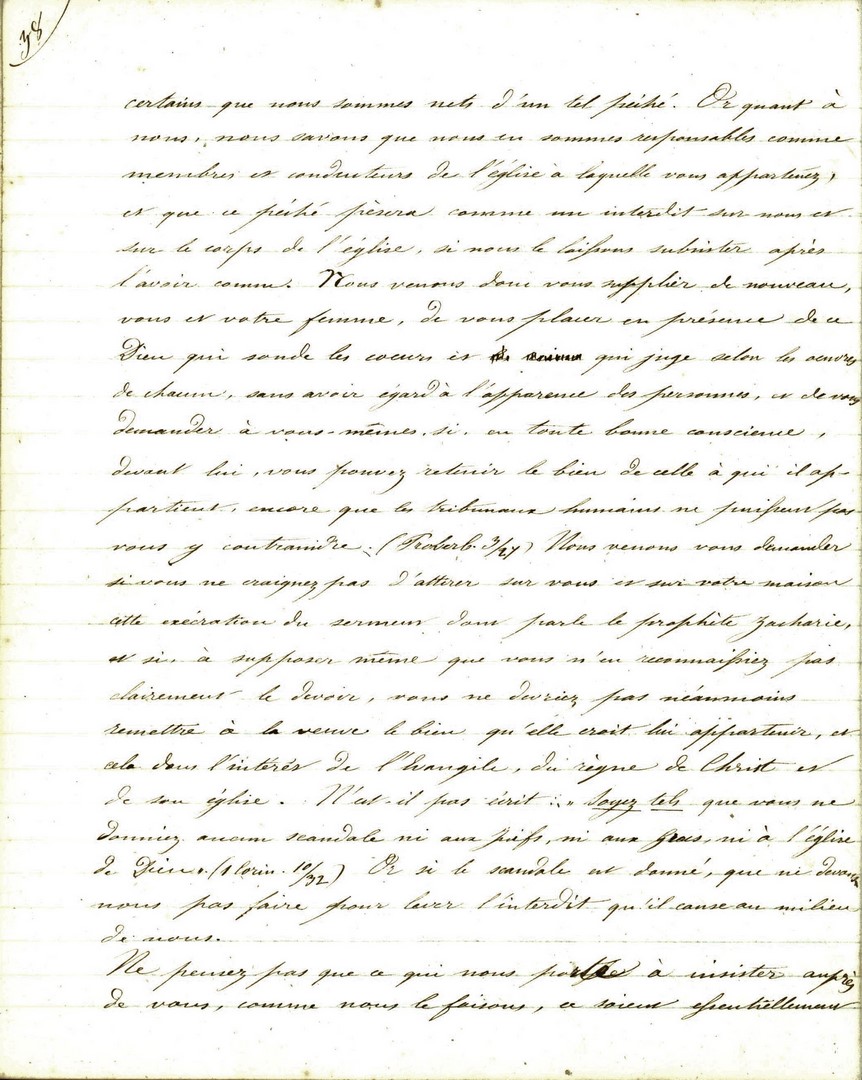 38
certains que nous sommes nets d'un tel péché. Or quant à
nous, nous savons que nous en sommes responsables comme
membres et conducteurs de l'église à laquelle vous appartenez,
et que ce péché pèsera comme un interdit sur nous et
sur le corps de l'église, si nous le laissons subsister après
l'avoir connu. Nous venons donc vous supplier de nouveau,
vous et votre femme, de vous placer en présence de ce
Dieu qui sonde les coeurs et qui juge selon les oeuvres
de chacun, sans avoir égard à l'apparence des personnes, et de vous
demander à vous-mêmes, si, en toute bonne conscience,
devant lui, vous pouvez retenir le bien de celle à qui il ap-
partient, encore que les tribunaux humains ne puissent pas
vous y contraindre. (Proverb. 3/27) Nous venons vous demander
si vous ne craignez pas d'attirer sur vous et sur votre maison
cette exécration du serment dont parle le prophète Zacharie,
et si, à supposer même que vous n'en reconnaissiez pas
clairement le devoir, vous ne devriez pas néanmoins
remettre à la veuve le bien qu'elle croit lui appartenir, et
cela dans l'intérêt de l'Evangile, du règne de Christ et
de son église. N'est-il pas écrit : „ Soyez tels que vous ne
donniez aucun scandale ni aux juifs, ni aux grecs, ni à l'église
de Dieu. (1 Corin. 10/32) Or si le scandale est donné, que ne devons
nous pas faire pour lever l'interdit qu'il cause au milieu
de nous.
Ne pensez pas que ce qui nous porte à insister auprès
de vous, comme nous le faisons, ce soient essentiellement